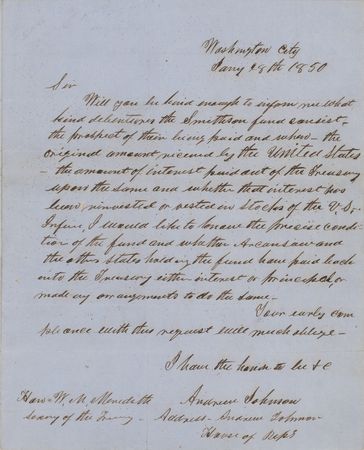 Washington City
Jany 28th 1850
Sir
Will you be kind enough to inform me what
kind debentures the Smithson fund consist,
the prospect of their being paid and when - the
original amount received by the United States -
- the amount of interest paid out of the Treasury
upon the same and whether that interest has
been reinvested or vested in stocks of the U.S.
In fine, I would like to know the precise condi-
tion of the fund and whether Arkansaw and
the other states holding the fund have paid back
into the Treasury either interest or principal, or
made any arrangements to do the same -
Your early com
pliance with this request will much oblige -
I have the honor to be &c
Andrew Johnson
Hon W. M. Meredith
Secry of the Treasy - Address - Andrew Johnson
House of Reps